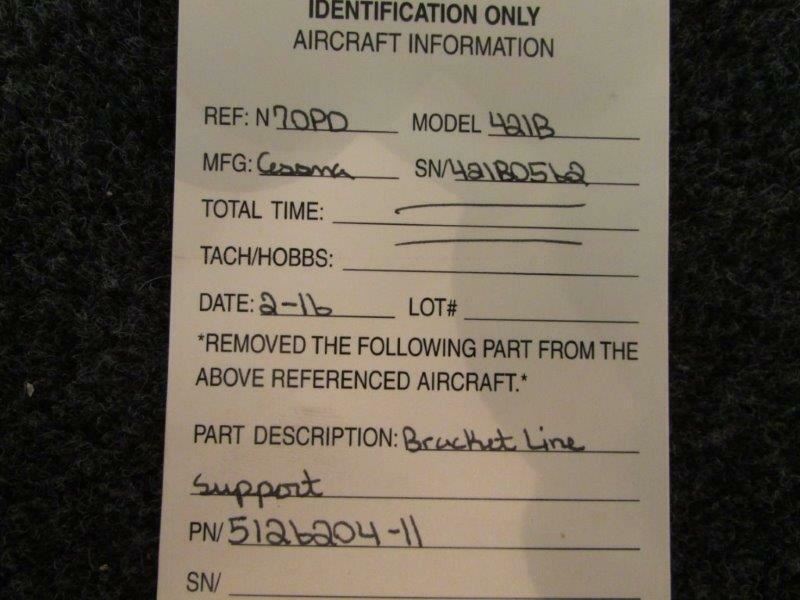 IDENTIFICATION ONLY
AIRCRAFT INFORMATION
REF: N 70PD MODEL 421B
MFG: Cessna SN/ 421B0562
TOTAL TIME:
TACH/HOBBS:
DATE: 2-16 LOT#
*REMOVED THE FOLLOWING PART FROM THE
ABOVE REFERENCED AIRCRAFT.*
PART DESCRIPTION: Bracket Line
Support
PN/ 5126204-11
SN/